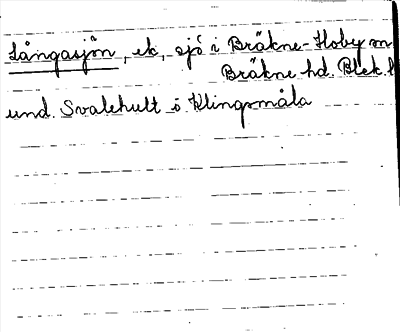 Långasjön, ek, sjö i Bräkne-Hoby sn
Bräkne hd. Blek. l
und. Svalehult ö Klingsmåla